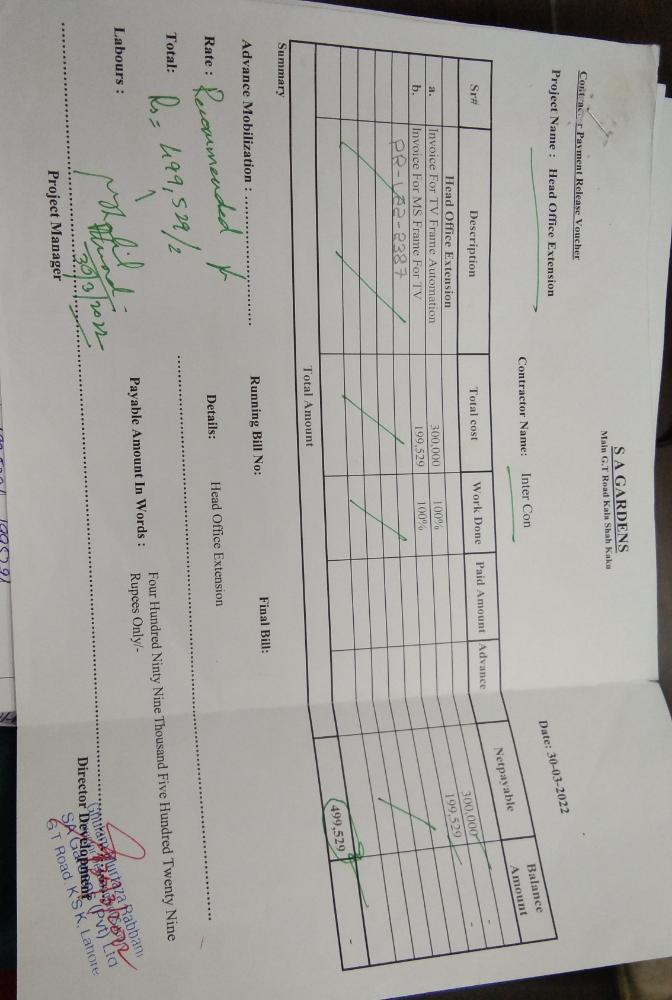 S A GARDENS
Main G.T Road Kala Shah Kaku
Payment Release Voucher
Date: 30-03-2022
Project Name : Head Office Extension
Contractor Name: Inter Con
Sr# Description Total cost Work Done Paid Amount Advance Netpayable Balance Amount
Head Office Extension
a. Invoice For TV Frame Automation 300,000 100% 300,000 -
b. Invoice For MS Frame For TV 199,529 100% 199,529 -
Total Amount 499,529 -
Summary
Advance Mobilization :
Running Bill No:
Final Bill:
Rate : Recommended
Details: Head Office Extension
Total: Rs = 499,529/2
Labours :
Payable Amount In Words : Four Hundred Ninty Nine Thousand Five Hundred Twenty Nine
Rupees Only/-
30/3/2022
Project Manager
Director Development
Murtaza Rabbani
(Pvt) Ltd
G T Road, K S K, Lahore